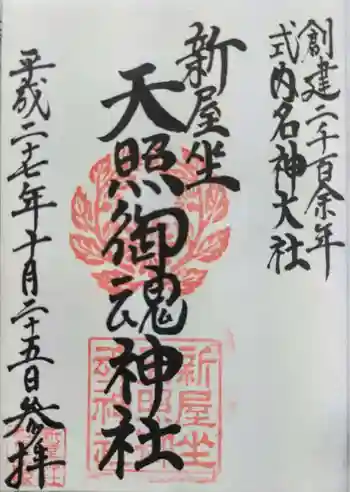 創建二千百余年
式内名神大社
新屋坐
天照御魂神社
平成二十七年十月二十五日参拝
新屋坐
天照御
魂神社